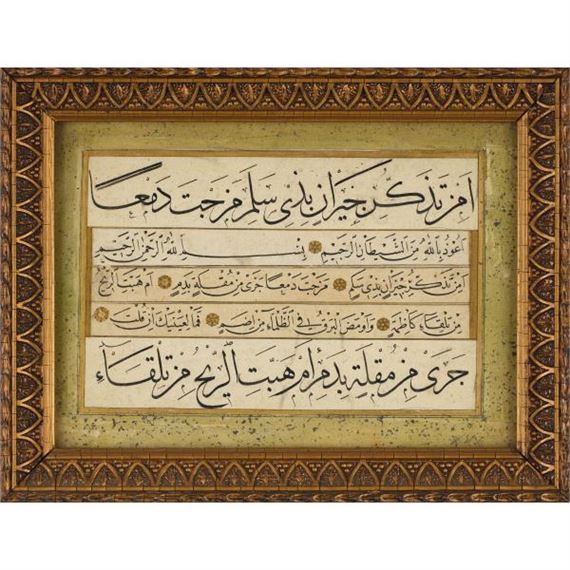 امن تذكر جيران بذي سلم مزجت دمعا
اعوذ بالله من الشيطان الرجيم بسم الله الرحمن الرحيم
امن تذكر جيران بذي سلم مزجت دمعا جرى من مقلة بدم ام هبت الريح
من تلقاء كاظمة واومض البرق في الظلماء من اضم فما لعينيك ان قلت
جرى من مقلة بدم ام هبت الريح من تلقاء